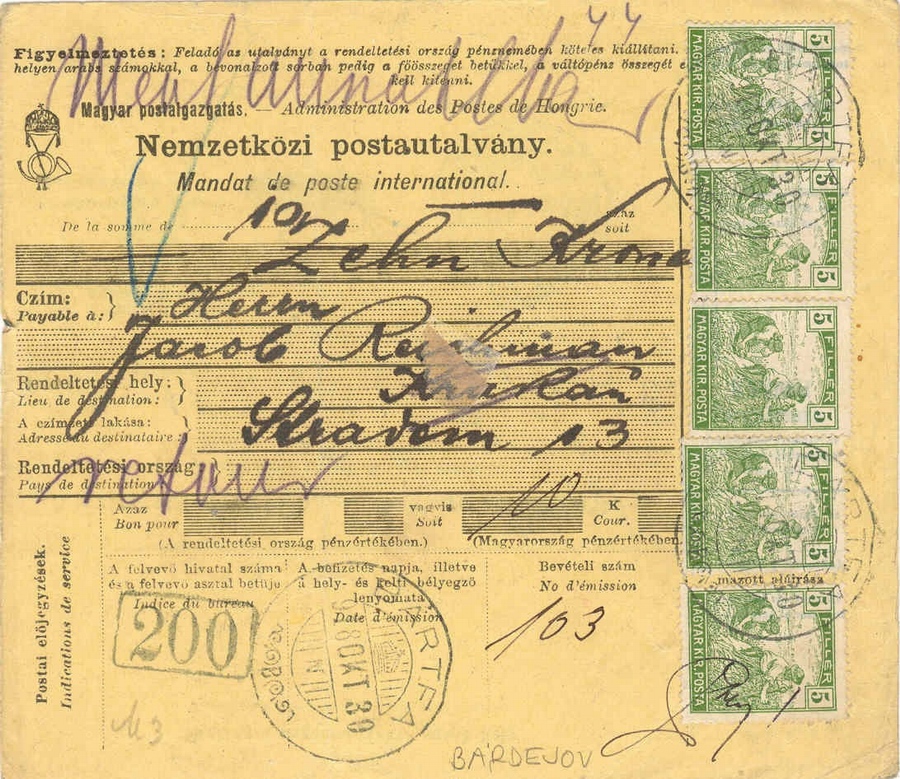 44
Figyelmeztetés: Feladó az utalványt a rendeltetési ország pénznemében köteles kiállítani.
helyen arabs számokkal, a bevonalzott sorban pedig a főösszeget betükkel, a váltópénz összegét
kell kitenni.
Magyar postaigazgatás. — Administration des Postes de Hongrie.
Nemzetközi postautalvány.
Mandat de poste international.
De la somme de 10 száz
soit
Zehn Krone
Czím:
Payable à: Herrn
Jacob
Rendeltetési hely: Krakau
Lieu de destination:
A czímzett lakása: Stradom 13
Adresse du destinataire:
Rendeltetési ország:
Pays de destination
retour
Azaz vagyis 10 K
Bon pour Soit Cour.
(A rendeltetési ország pénzértékében.) (Magyarország pénzértékében.
Postai előjegyzések.
Indications de service
A felvevő hivatal száma
és a felvevő asztal betüje
Indice du bureau
200
A befizetés napja, illetve
a hely- és kelti bélyegző
lenyomata
Date d'émission
BÁRTFA
OKT 30
Bevételi szám
No d'émission
103
mazott aláirása
BÁRDEJOV
5 FILLÉR 5
MAGYAR KIR. POSTA
5 FILLÉR 5
MAGYAR KIR. POSTA
5 FILLÉR 5
MAGYAR KIR. POSTA
5 FILLÉR 5
MAGYAR KIR. POSTA
5 FILLÉR 5
MAGYAR KIR. POSTA